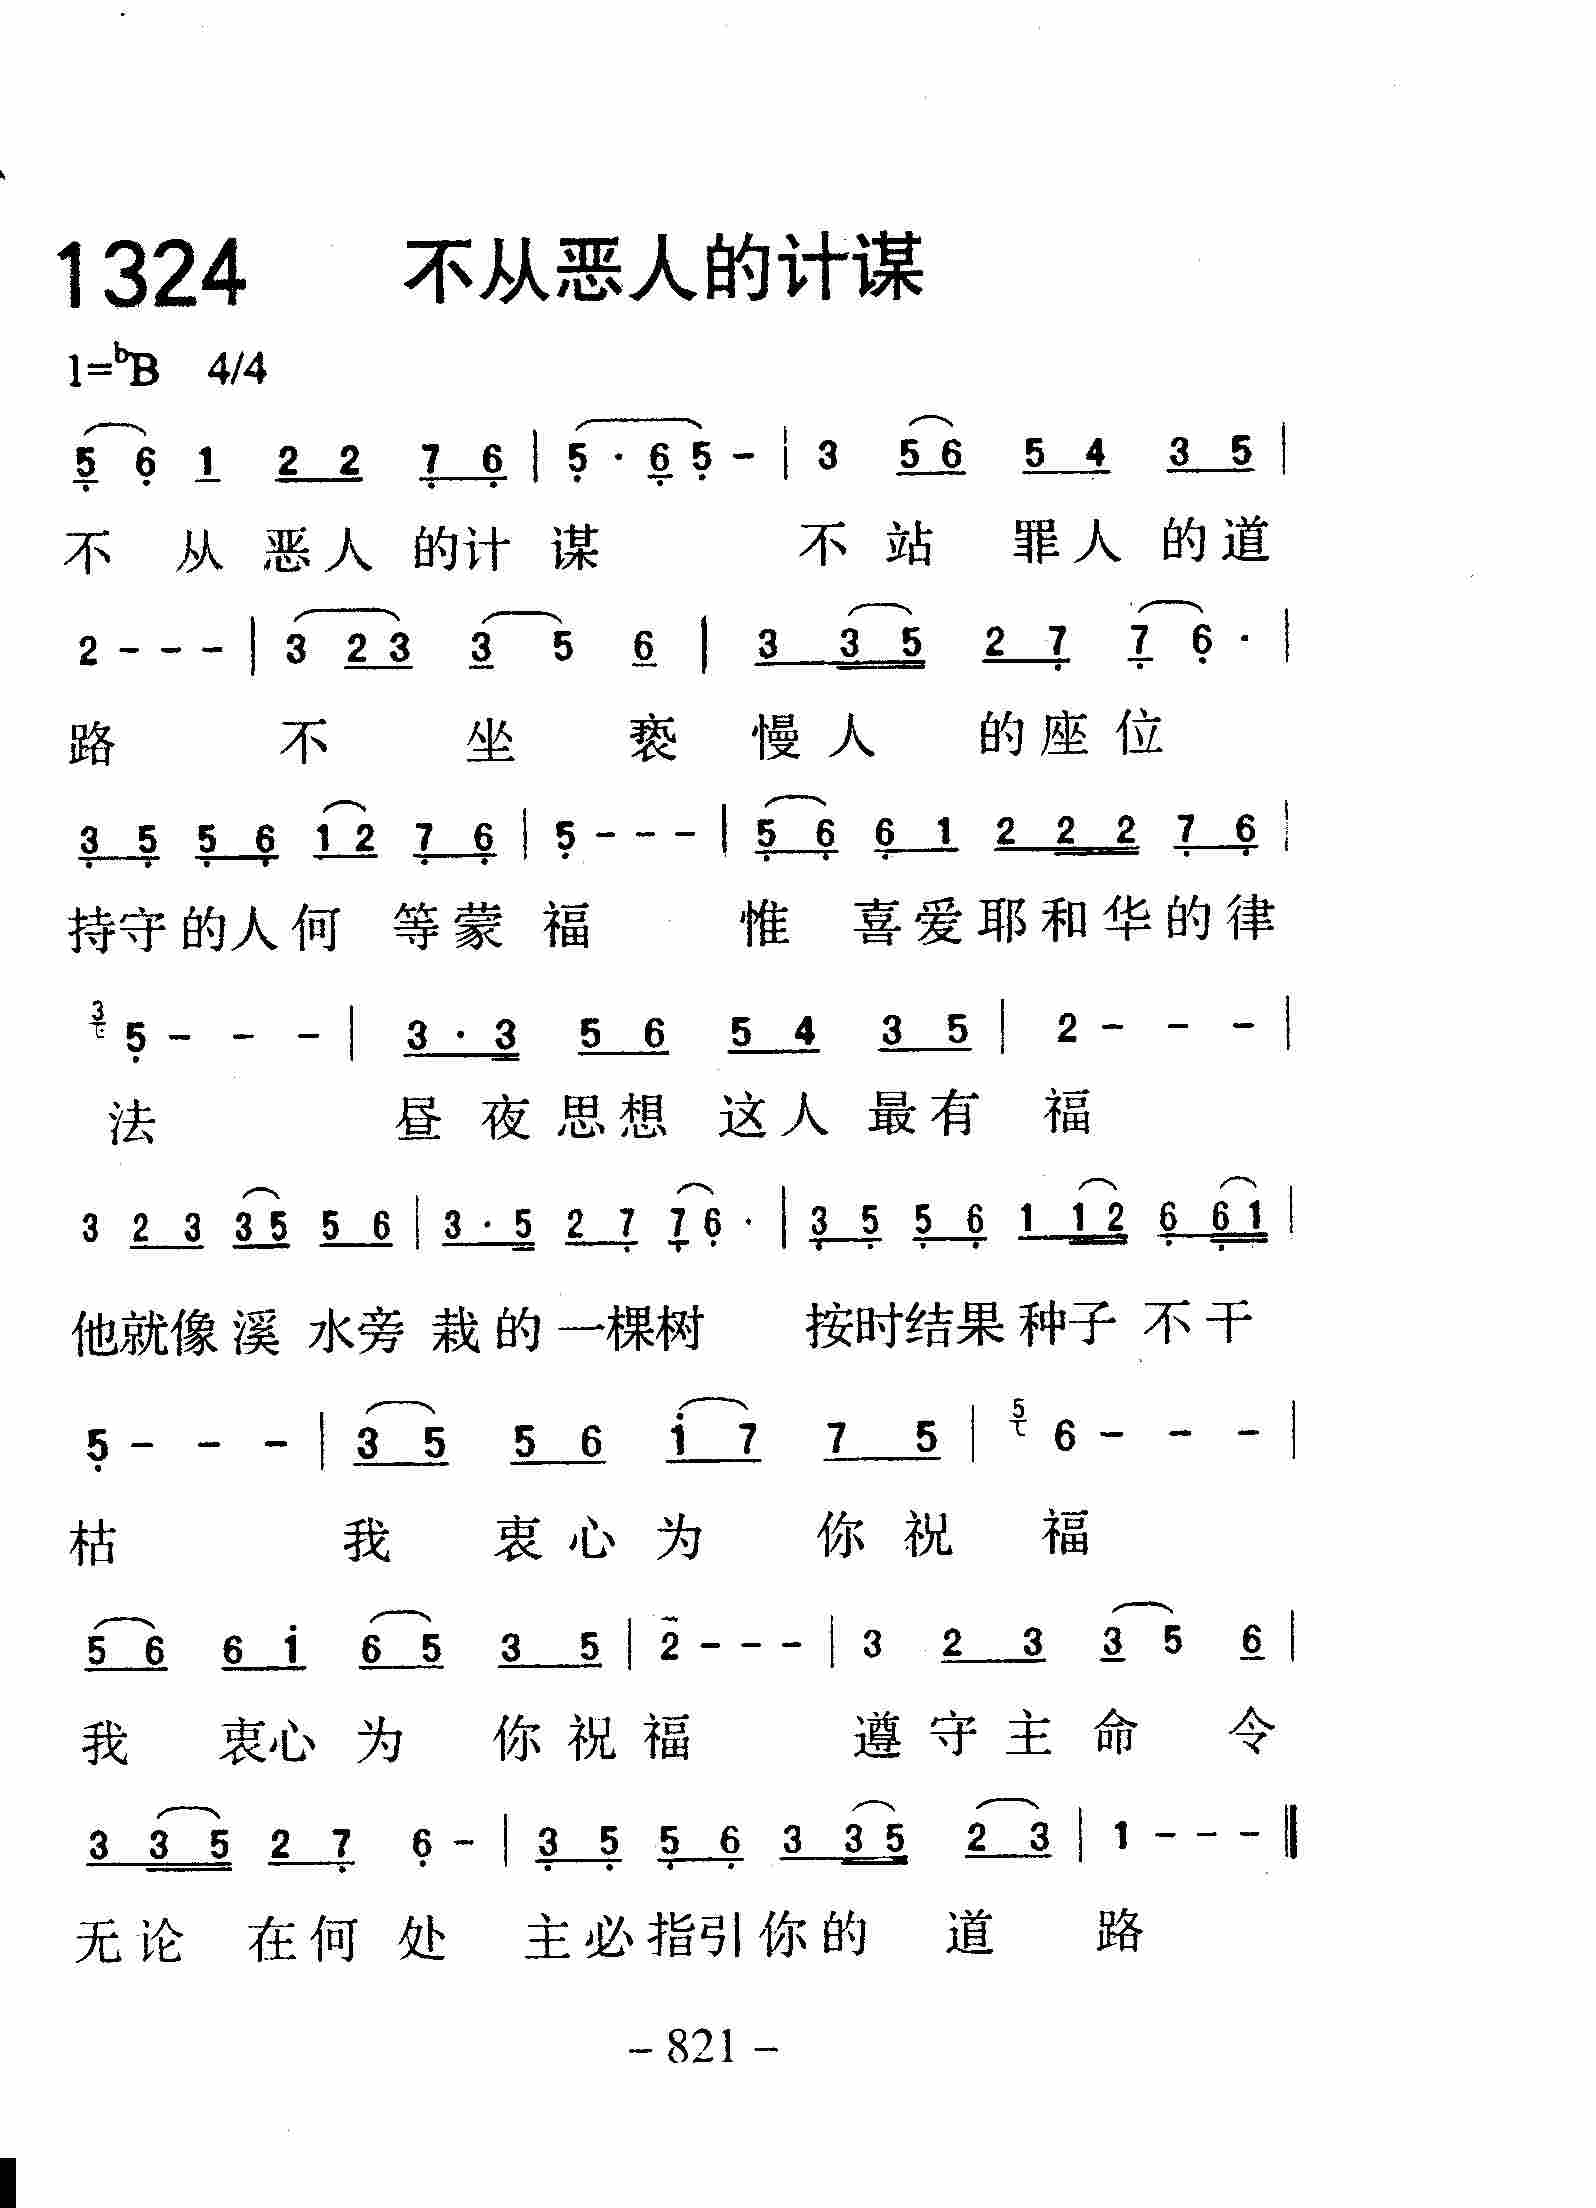 1324 不从恶人的计谋
1=bB 4/4
5 6 1 2 2 7 6 | 5 · 6 5 – | 3 5 6 5 4 3 5 |
不 从 恶 人 的 计 谋 不 站 罪 人 的 道
2 – – – | 3 2 3 3 5 6 | 3 3 5 2 7 7 6 · |
路 不 坐 亵 慢 人 的 座 位
3 5 5 6 1 2 7 6 | 5 – – – | 5 6 6 1 2 2 2 7 6 |
持 守 的 人 何 等 蒙 福 惟 喜 爱 耶 和 华 的 律
3 5 – – – | 3 · 3 5 6 5 4 3 5 | 2 – – – |
法 昼 夜 思 想 这 人 最 有 福
3 2 3 3 5 5 6 | 3 · 5 2 7 7 6 · | 3 5 5 6 1 1 2 6 6 1 |
他 就 像 溪 水 旁 栽 的 一 棵 树 按 时 结 果 种 子 不 干
5 – – – | 3 5 5 6 i 7 7 5 | 5 6 – – – |
枯 我 衷 心 为 你 祝 福
5 6 6 i 6 5 3 5 | 2 – – – | 3 2 3 3 5 6 |
我 衷 心 为 你 祝 福 遵 守 主 命 令
3 3 5 2 7 6 – | 3 5 5 6 3 3 5 2 3 | 1 – – – ‖
无 论 在 何 处 主 必 指 引 你 的 道 路
– 821 –